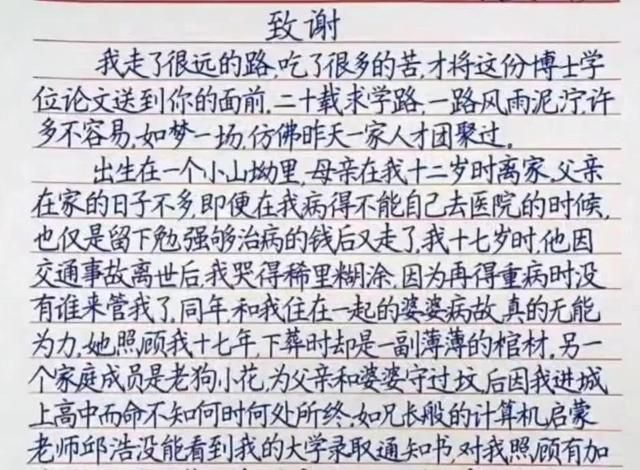 致谢
我走了很远的路,吃了很多的苦,才将这份博士学
位论文送到你的面前,二十载求学路,一路风雨泥泞,许
多不容易,如梦一场,仿佛昨天一家人才团聚过。
出生在一个小山坳里,母亲在我十二岁时离家,父亲
在家的日子不多,即便在我病得不能自己去医院的时候,
也仅是留下勉强够治病的钱后又走了,我十七岁时,他因
交通事故离世后,我哭得稀里糊涂,因为再得重病时没
有谁来管我了,同年,和我住在一起的婆婆病故,真的无能
为力,她照顾我十七年,下葬时却是一副薄薄的棺材,另一
个家庭成员是老狗小花,为父亲和婆婆守过坟,后因我进城
上高中而命不知何时何处所终,如兄长般的计算机启蒙
老师邱浩没能看到我的大学录取通知书,对我照顾有加